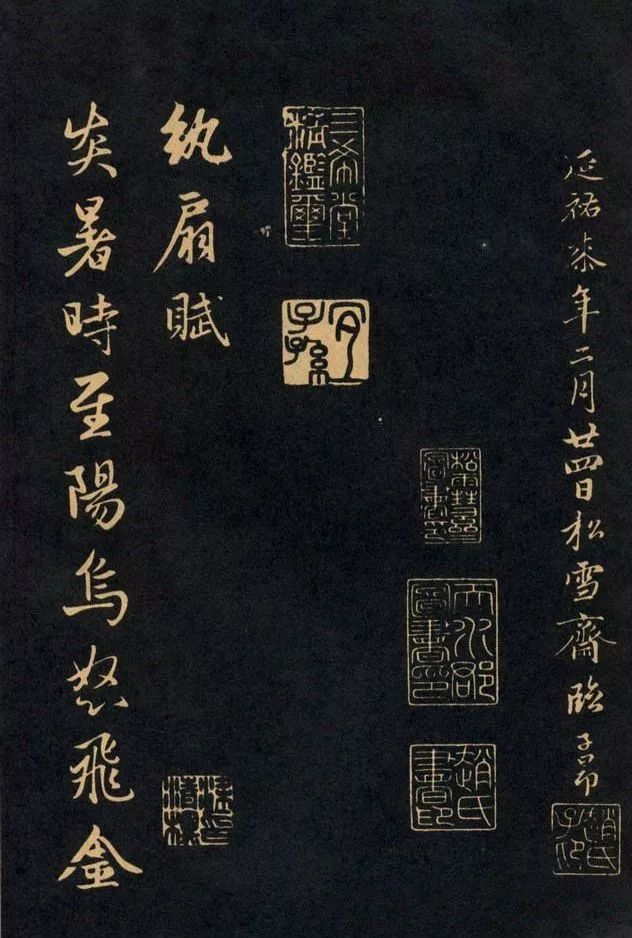 延祐柒年二月廿四日松雪齋臨子昂
趙氏子昂
天水郡圖書印
趙氏書印
三希堂精鑑璽
宜子孫
紈扇賦
梁印清標
炎暑時至陽烏怒飛金